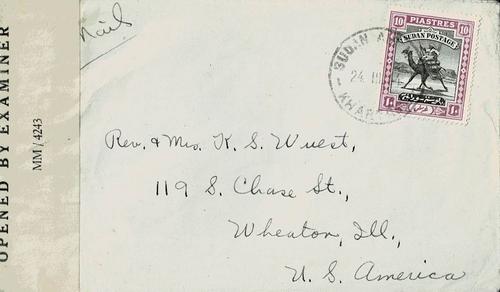 OPENED BY EXAMINER
MM/4243
Mail
10 PIASTRES 10
SUDAN POSTAGE
SUDAN
24
KHAR
Rev. & Mrs. K. S. Wuest,
119 S. Chase St.,
Wheaton, Ill.,
U. S. America